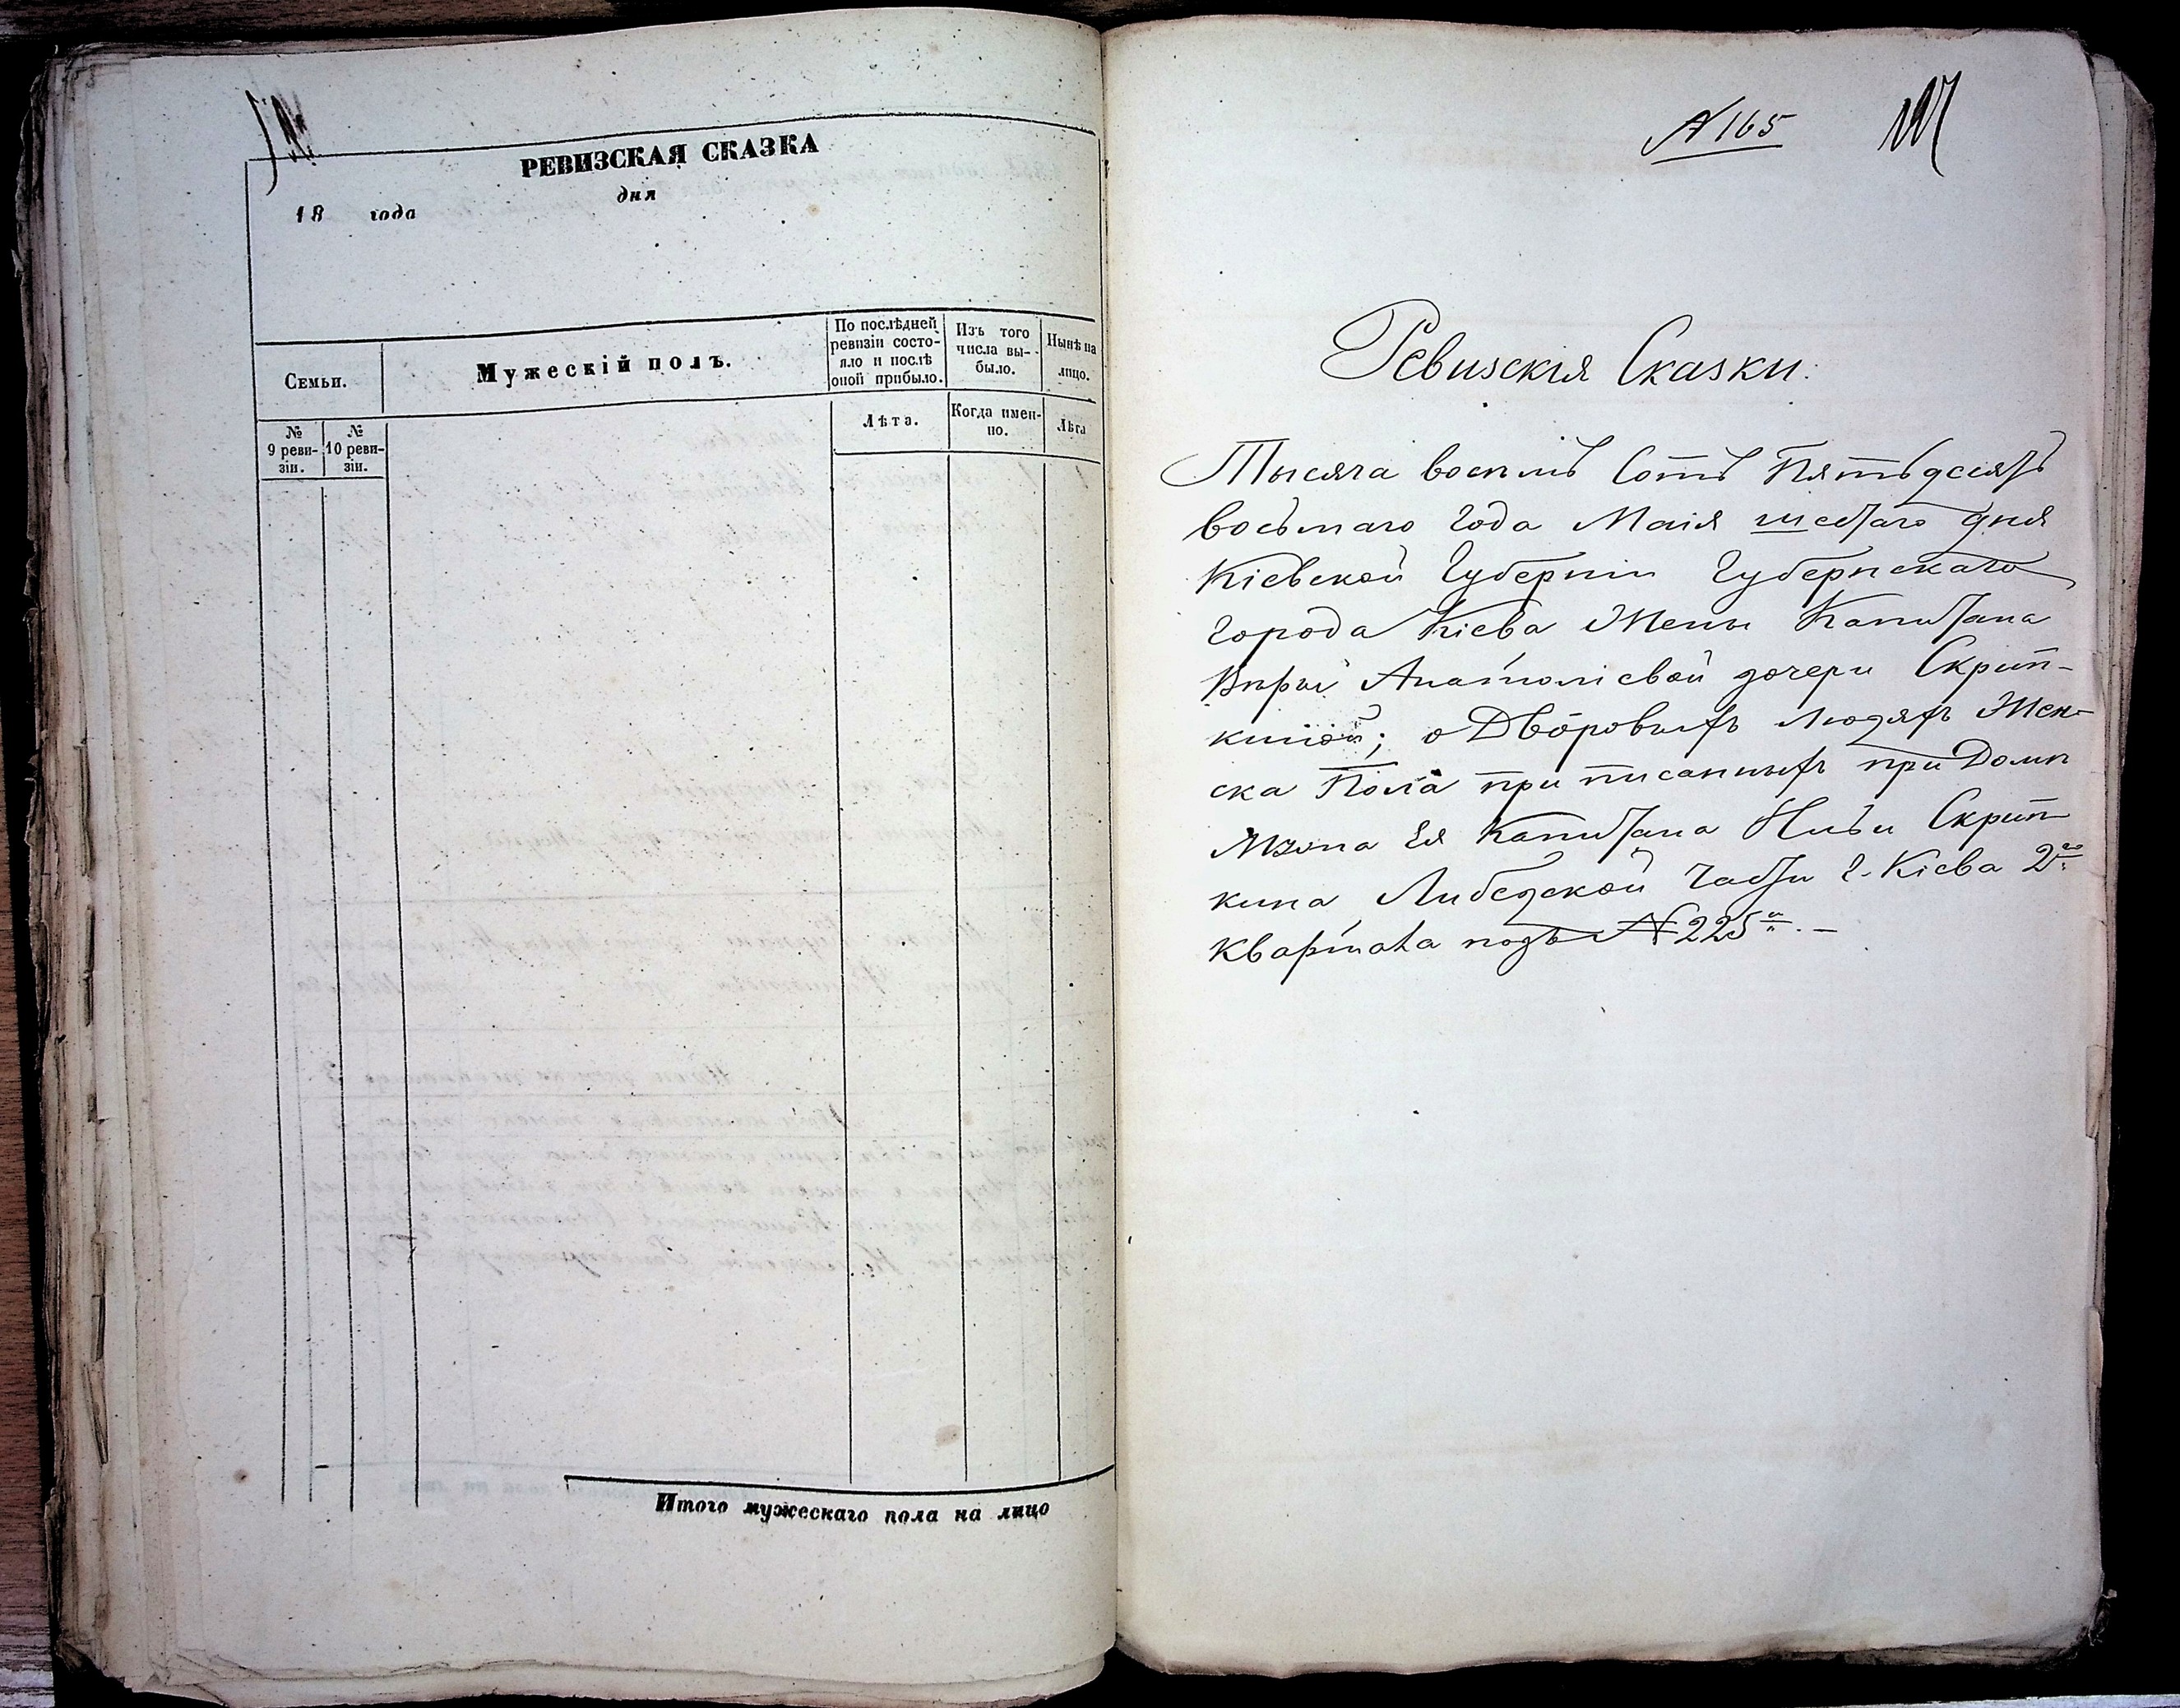 РЕВИЗСКАЯ СКАЗКА
дня
18 года
Семьи.
Мужескій полъ.
По послѣдней
ревизіи состо-
яло и послѣ
оной прибыло.
Изъ того
числа вы-
было.
Нынѣ на
лицо.
№
9 реви-
зіи.
№
10 реви-
зіи.
Лѣта.
Когда имен-
но.
Лѣта
Итого мужескаго пола на лицо
№ 165
Ревизскія Сказки:
Тысяча восемь Сотъ Пятьдесятъ
восьмаго Года Маія шестаго дня
Кіевской Губерніи Губернскаго
Города Кіева Жены Капитана
Вѣры Анатоліевой дочери Скрип-
киной; о Дворовыхъ людяхъ Жен-
ска Пола при писанныхъ при Домѣ
Мужа Ея Капитана Скрип-
кина Либедской Части г. Кіева 2го
Квартала подъ № 225м. –